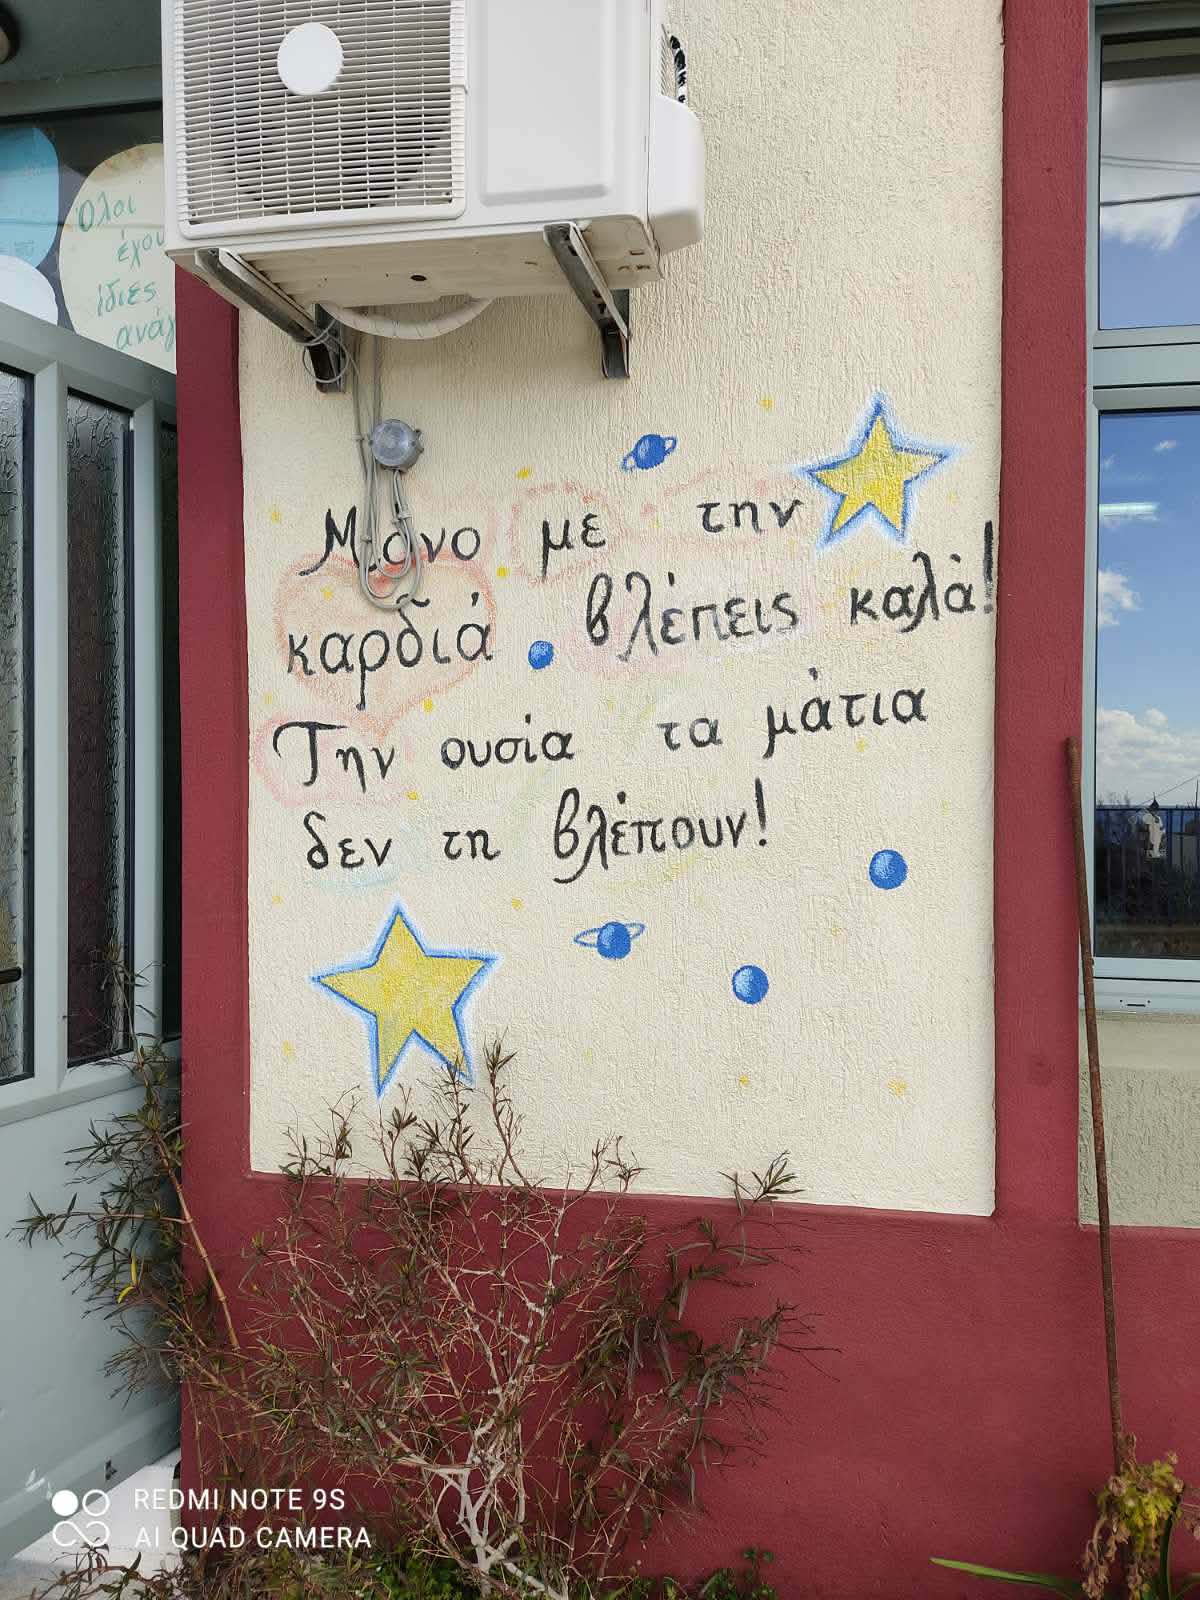 Όλοι
έχου
ίδιες
ανάγ
Μόνο με την
καρδιά βλέπεις καλά!
Την ουσία τα μάτια
δεν τη βλέπουν!
REDMI NOTE 9S
AI QUAD CAMERA